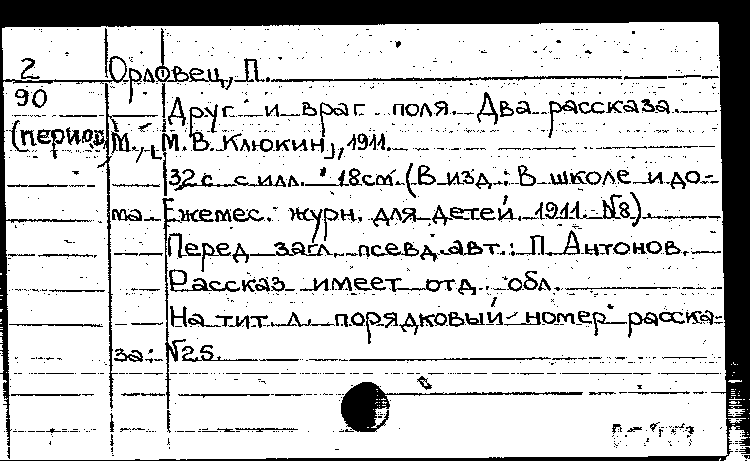 2 Орловец, П.
90 Друг и враг поля. Два рассказа.
(период) М., [М.В. Клюкин], 1911.
32 с. с илл. 18см. (В изд.: В школе и до-
ма. Ежемес. журн. для детей. 1911. №8).
Перед загл. псевд. авт.: П. Антонов.
Рассказ имеет отд. обл.
На тит. л. порядковый номер расска-
за: №25.